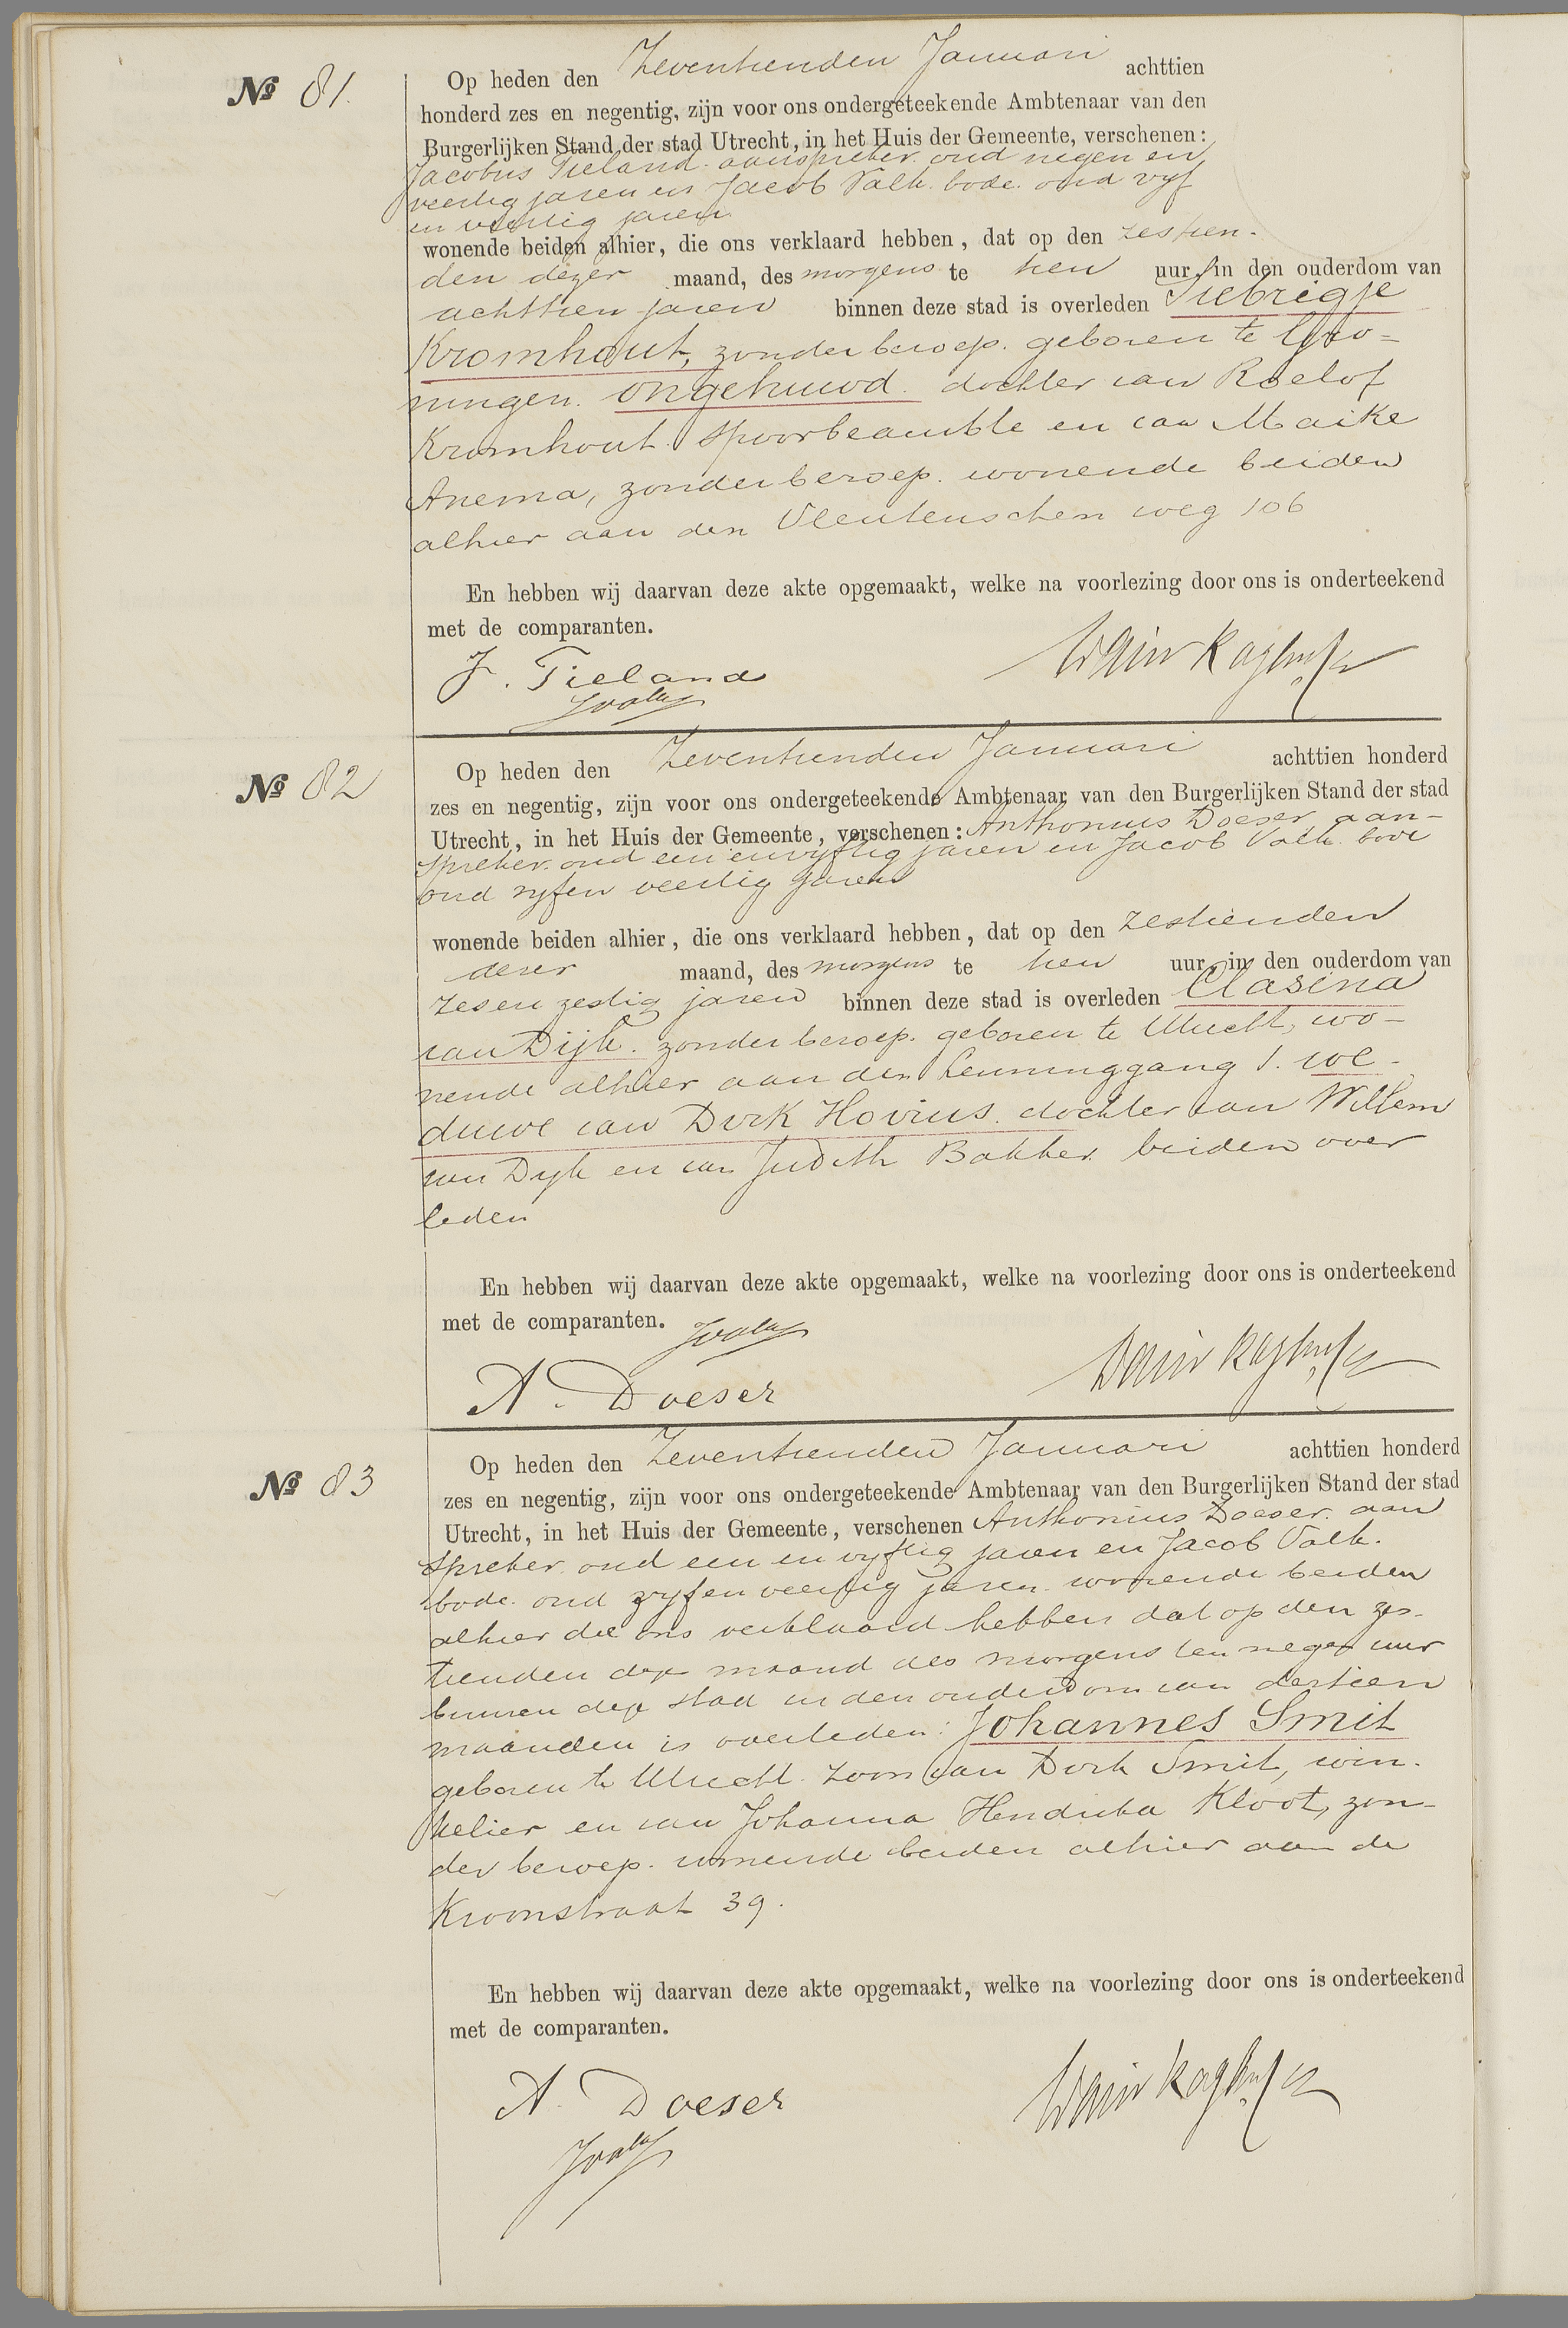 № 81.
Op heden den Zeventienden Januari achttien
honderd zes en negentig, zijn voor ons ondergeteekende Ambtenaar van den
Burgerlijken Stand der stad Utrecht, in het Huis der Gemeente, verschenen:
Jacobus Tieland. aanspreker. oud negen en
veertig jaren en Jacob Valk. bode. oud vijf
en veertig jaren
wonende beiden alhier, die ons verklaard hebben, dat op den zestien-
den dezer maand, des morgens te tien uur, in den ouderdom van
achttien jaren binnen deze stad is overleden Siebrigje
Kromhout, zonder beroep. geboren te Gro=
ningen. ongehuwd. dochter van Roelof
Kromhout. spoorbeambte en van Maike
Anema, zonder beroep. wonende beiden
alhier aan den Vleutenschen weg 106
En hebben wij daarvan deze akte opgemaakt, welke na voorlezing door ons is onderteekend
met de comparanten.
J. Tieland
JValk
№ 82
Op heden den Zeventienden Januari achttien honderd
zes en negentig, zijn voor ons ondergeteekende Ambtenaar van den Burgerlijken Stand der stad
Utrecht, in het Huis der Gemeente, verschenen: Anthonius Doeser aan-
spreker. oud een en vijftig jaren en Jacob Valk. bode
oud vijf en veertig jaren
wonende beiden alhier, die ons verklaard hebben, dat op den zestienden
dezer maand, des morgens te tien uur, in den ouderdom van
zes en zestig jaren binnen deze stad is overleden Clasina
van Dijk. zonder beroep. geboren te Utrecht, wo-
nende alhier aan den Lenninggang 1. we-
duwe van Dirk Hovius. dochter van Willem
van Dijk en van Judith Bakker. beiden over
leden
En hebben wij daarvan deze akte opgemaakt, welke na voorlezing door ons is onderteekend
met de comparanten. JValk
A. Doeser
№ 83
Op heden den Zeventienden Januari achttien honderd
zes en negentig, zijn voor ons ondergeteekende Ambtenaar van den Burgerlijken Stand der stad
Utrecht, in het Huis der Gemeente, verschenen Anthonius Doeser. aan
spreker. oud een en vijftig jaren en Jacob Valk.
bode. oud vijf en veertig jaren. wonende beiden
alhier die ons verklaard hebben dat op den zes-
tienden dezer maand des morgens ten negen uur
binnen deze stad in den ouderdom van dertien
maanden is overleden: Johannes Smit
geboren te Utrecht. zoon van Dirk Smit, win-
kelier en van Johanna Hendrika Kloot, zon-
der beroep. wonende beiden alhier aan de
Kroonstraat 39.
En hebben wij daarvan deze akte opgemaakt, welke na voorlezing door ons is onderteekend
met de comparanten.
A. Doeser
JValk